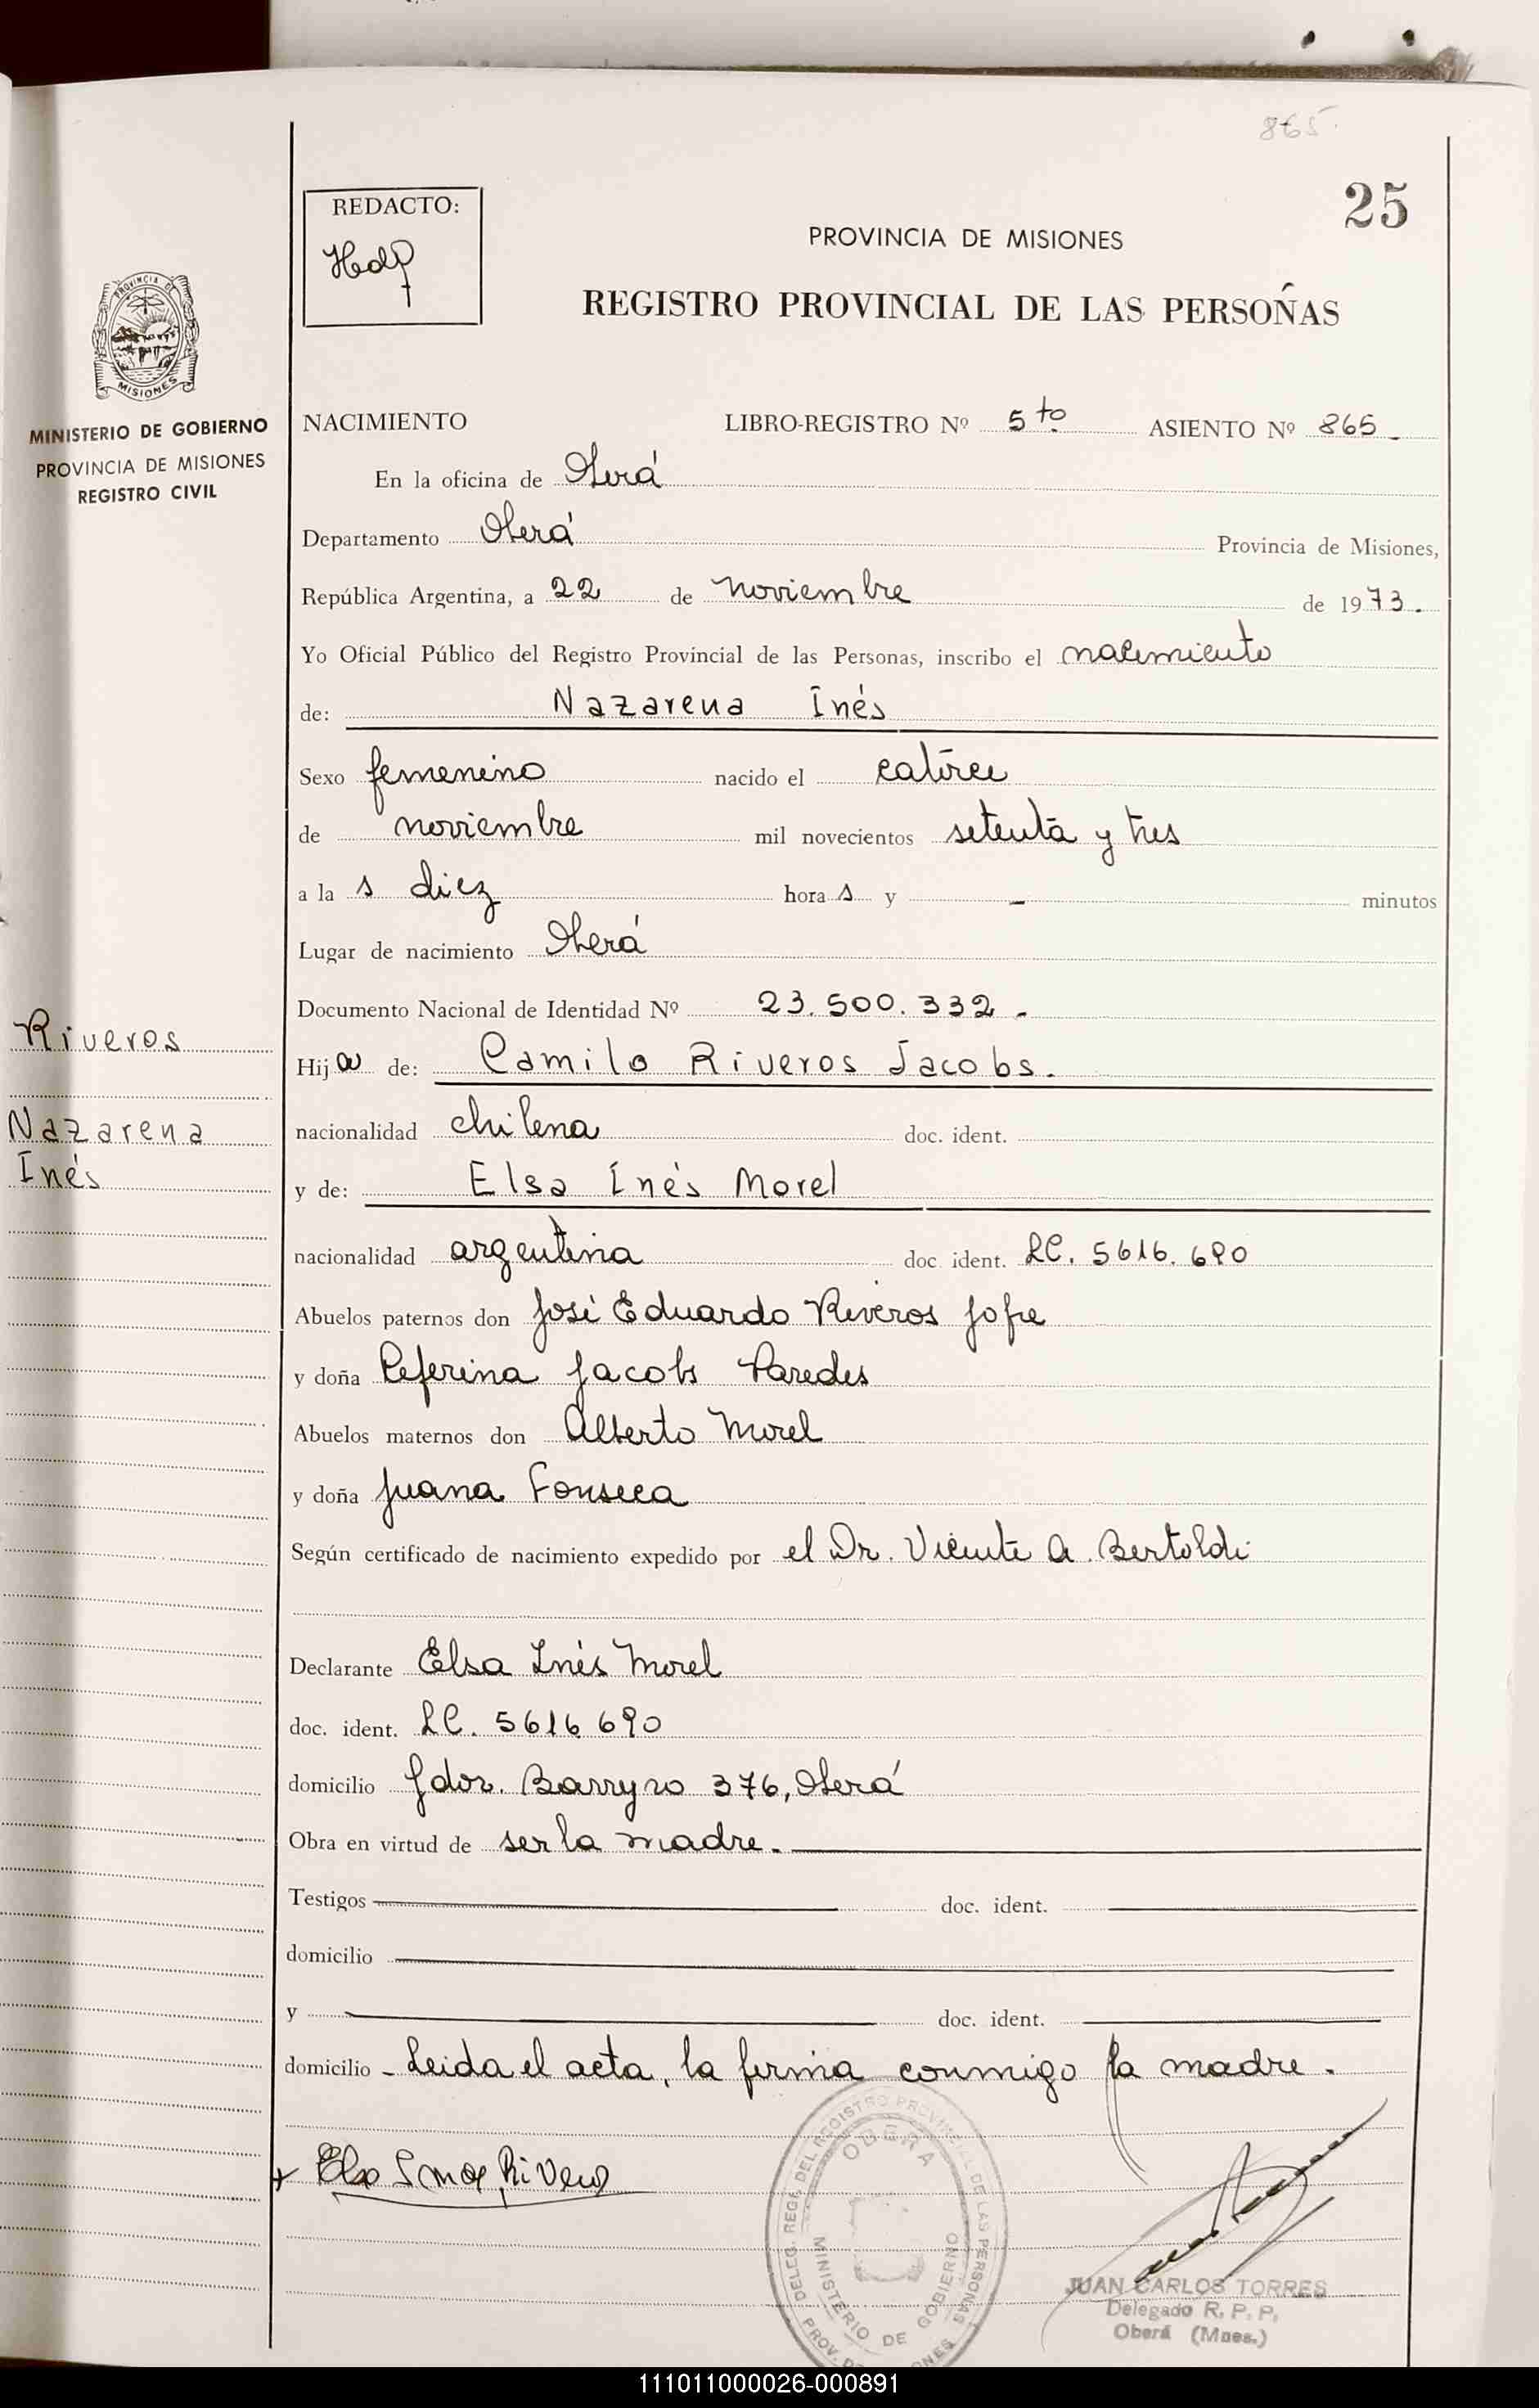 865.
25
REDACTO:
PROVINCIA DE MISIONES
REGISTRO PROVINCIAL DE LAS PERSOÑAS
PROVINCIA DE
MISIONES
MINISTERIO DE GOBIERNO
PROVINCIA DE MISIONES
REGISTRO CIVIL
NACIMIENTO LIBRO-REGISTRO Nº 5to. ASIENTO Nº 865.
En la oficina de Oberá
Departamento Oberá Provincia de Misiones,
República Argentina, a 22 de noviembre de 1973.
Yo Oficial Público del Registro Provincial de las Personas, inscribo el nacimiento
de: Nazarena Inés
Sexo femenino nacido el catorce
de noviembre mil novecientos setenta y tres
a la s diez hora s y - minutos
Lugar de nacimiento Oberá
Documento Nacional de Identidad Nº 23.500.332.-
Riveros
Hija de: Camilo Riveros Jacobs.
Nazarena
nacionalidad chilena doc. ident.
Inés
y de: Elsa Inés Morel
nacionalidad argentina doc. ident. LC. 5616.690
Abuelos paternos don José Eduardo Riveros Jofre
y doña Ceferina Jacobs Paredes
Abuelos maternos don Alberto Morel
y doña Juana Fonseca
Según certificado de nacimiento expedido por el Dr. Vicente A. Bertoldi
Declarante Elsa Inés Morel
doc. ident. LC. 5616.690
domicilio Gdor. Barreyro 376, Oberá
Obra en virtud de ser la madre.
Testigos doc. ident.
domicilio
y doc. ident.
domicilio - Leida el acta, la firma conmigo la madre.
DELEG. REGL. DEL REGISTRO PROVINCIAL DE LAS PERSONAS
OBERA
MINISTERIO DE GOBIERNO
JUAN CARLOS TORRES
Delegado R. P. P.
Oberá (Mnes.)
111011000026-000891